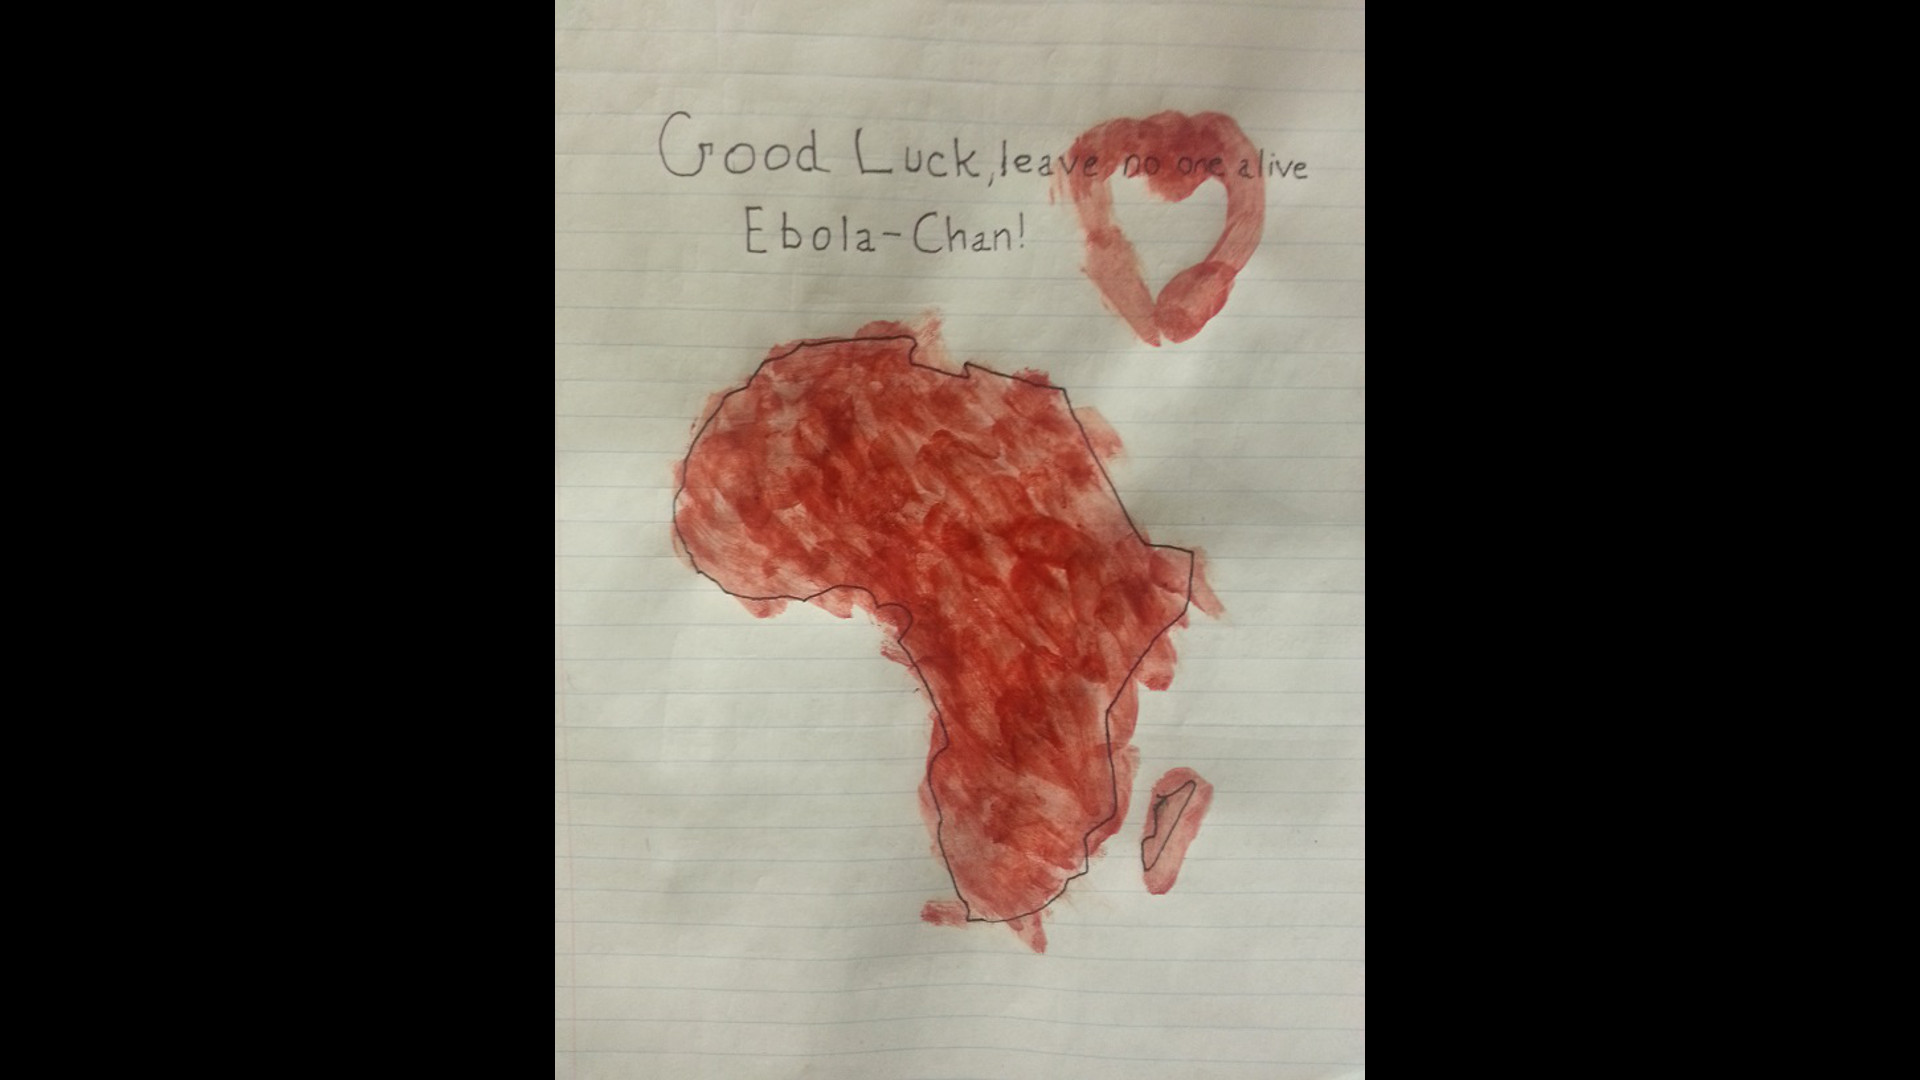 Good Luck, leave no one alive
Ebola-Chan!